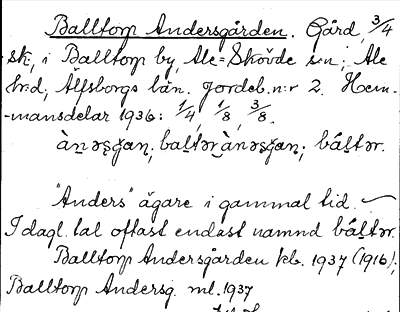 Balltorp Andersgården. Gård, 3/4
sk, i Balltorp by, Ale=Skövde s:n; Ale
h:d; Älfsborgs län. Jordeb. n:r 2. Hem-
-mansdelar 1936: 1/4, 1/8, 3/8.
"Anders" ägare i gammal tid. –
I dagl. tal oftast endast namnd
Balltorp Andersgården kb. 1937 (1916);
Balltorp Andersg. ml. 1937